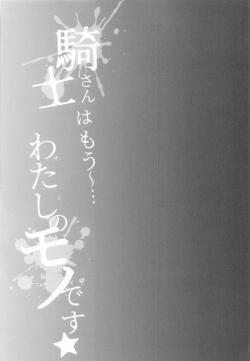 騎士さんはもう〜…
わたしのモノです★